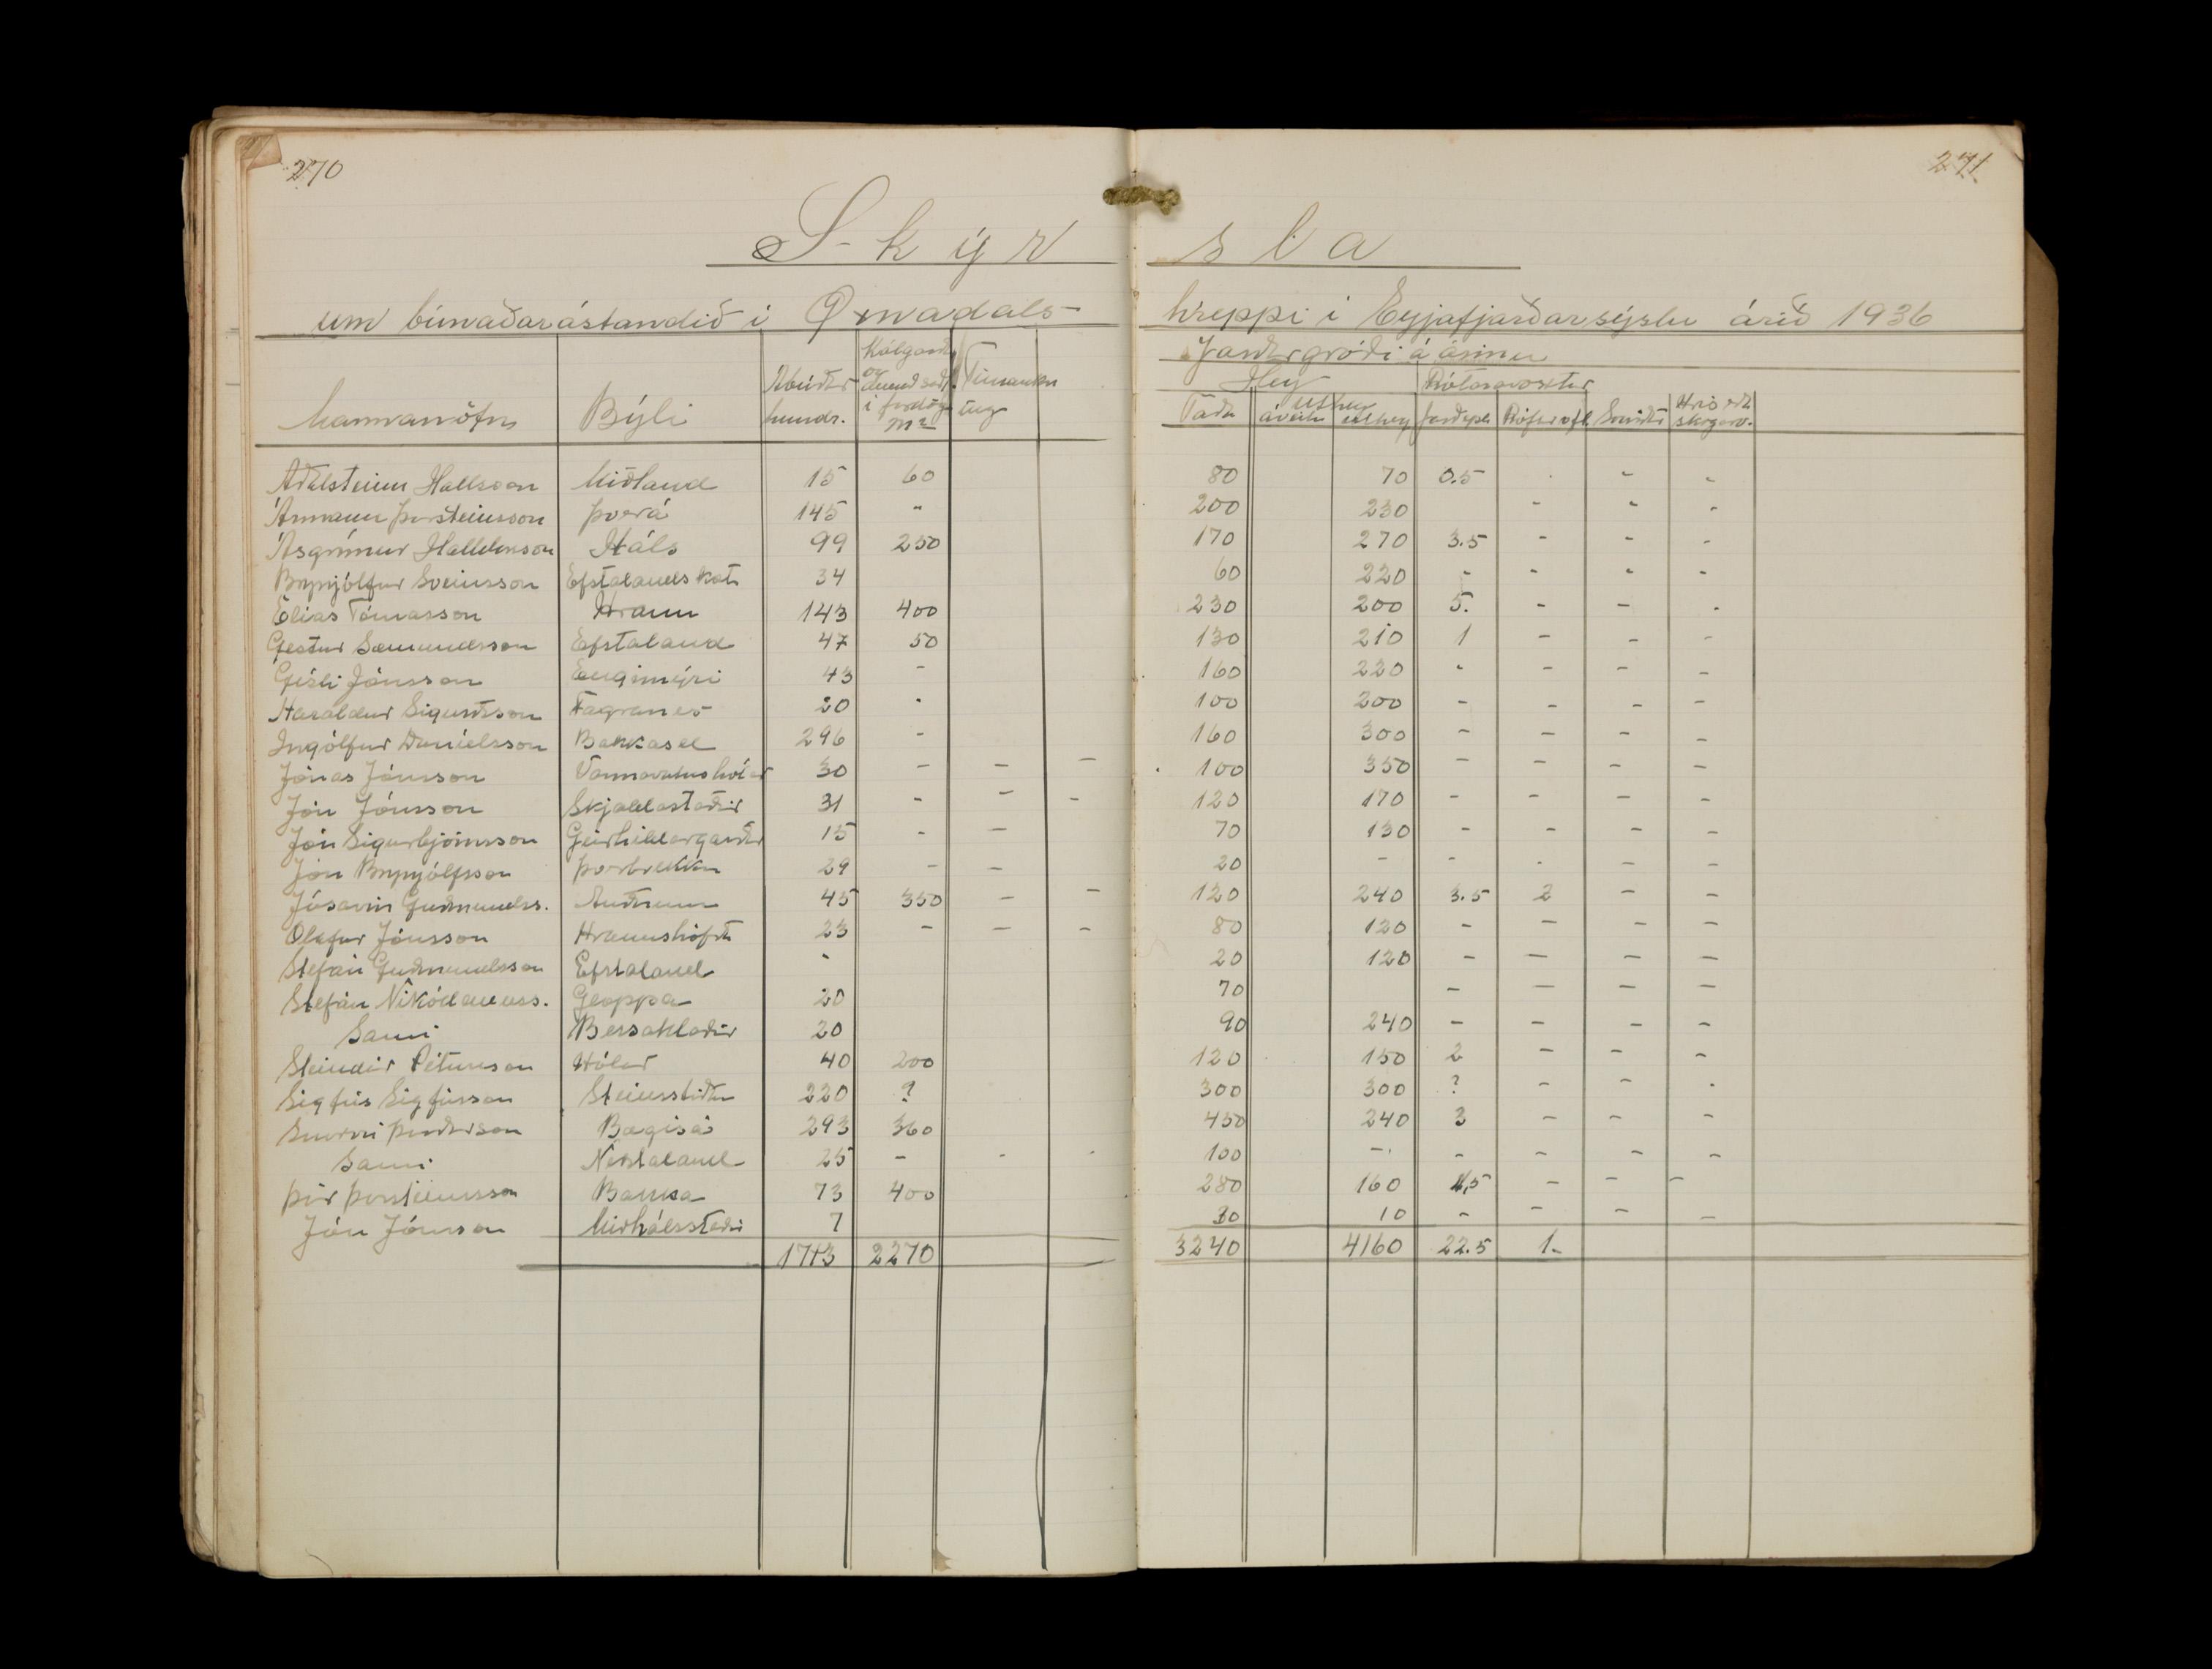 270
271
Skýrsla
um búnaðarástandið í Öxnadalshreppi í Eyjafjarðarsýslu árið 1936
Mannanöfn Býli Ábúðar hundr. Kálgarðr og í m² Jarðargróði á árinu
Hey Rótarávöxtur
Taða úthey Jarðepli Rófur Hrís eða skógarv.
Aðalsteinn Hallsson Miðland 15 60 80 70 0.5 - -
Ármann Þorsteinsson Þverá 145 " 200 230 - - -
Ásgrímur Halldórsson Háls 99 250 170 270 3.5 - - -
Brynjólfur Sveinsson Efstalandskot 34 60 220 - - - -
Elías Tómasson Hraun 143 400 230 200 5. - - -
Gestur Sæmundsson Efstaland 47 50 130 210 1 - - -
Gísli Jónsson Engimýri 43 - 160 220 - - - -
Haraldur Sigurðsson Fagranes 20 - 100 200 - - - -
Ingólfur Daníelsson Bakkasel 296 - 160 300 - - - -
Jónas Jónsson Varmavatnshólar 30 - - - 100 350 - - - -
Jón Jónsson Skjaldastaðir 31 - - - 120 170 - - - -
Jón Sigurbjörnsson Geirhildargarðar 15 - - 70 130 - - - -
Jón Brynjólfsson Þverbrekka 29 - - 20 - - - - -
Jósavin Guðmundss. Auðnum 45 350 - - 120 240 3.5 2 - -
Ólafur Jónsson Hraunshöfði 23 - - - 80 120 - - - -
Stefán Guðmundsson Efstaland - 20 120 - - - -
Stefán Nikódemuss. Gloppa 20 70 - - - -
Sami Bessahlaðir 20 90 240 - - - -
Steindór Pétursson Hólar 40 200 120 150 2 - - -
Sigfús Sigfússon Steinsstaðir 220 ? 300 300 ? - - -
Snorri Þórðarson Bægisá 293 360 450 240 3 - - -
Sami Neðstaland 25 - - - 100 - - - - -
Þór Þorsteinsson Bakka 73 400 280 160 4,5 - - -
Jón Jónsson Miðhálsstaðir 7 30 10 - - - -
1713 2270 3240 4160 22.5 1-